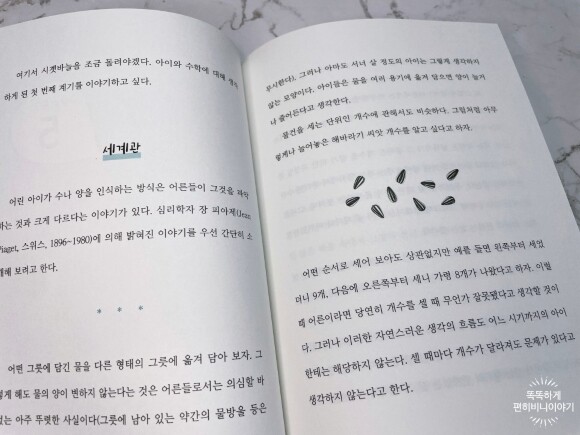 여기서 시곗바늘을 조금 돌려야겠다. 아이와 수학에 대해 생각
하게 된 첫 번째 계기를 이야기하고 싶다.
세계관
어린 아이가 수나 양을 인식하는 방식은 어른들이 그것을 파악
하는 것과 크게 다르다는 이야기가 있다. 심리학자 장 피아제(Jean
Piaget, 스위스, 1896~1980)에 의해 밝혀진 이야기를 우선 간단히 소
개해 보려고 한다.
* * *
어떤 그릇에 담긴 물을 다른 형태의 그릇에 옮겨 담아 보자. 그
렇게 해도 물의 양이 변하지 않는다는 것은 어른들로서는 의심할 바
없는 아주 뚜렷한 사실이다(그릇에 남아 있는 약간의 물방울 등은
무시한다). 그러나 아마도 서너 살 정도의 아이는 그렇게 생각하지
않는 모양이다. 아이들은 물을 여러 용기에 옮겨 담으면 양이 늘거
나 줄어든다고 생각한다.
물건을 세는 단위인 개수에 관해서도 비슷하다. 그림처럼 아무
렇게나 늘어놓은 해바라기 씨앗 개수를 알고 싶다고 하자.
어떤 순서로 세어 보아도 상관없지만 예를 들면 왼쪽부터 세었
더니 9개, 다음에 오른쪽부터 세니 가령 8개가 나왔다고 하자. 이럴
때 어른이라면 당연히 개수를 셀 때 무언가 잘못됐다고 생각할 것이
다. 그러나 이러한 자연스러운 생각의 흐름도 어느 시기까지의 아이
한테는 해당하지 않는다. 셀 때마다 개수가 달라져도 문제가 있다고
생각하지 않는다고 한다.
똑똑하게
편히비니이야기